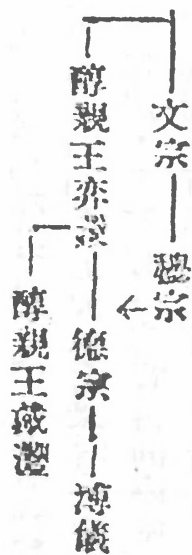 文宗——穆宗
醇親王奕譞——德宗——溥儀
醇親王載灃